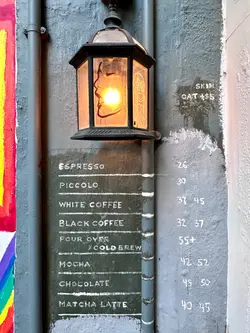 SKIM
OAT +5
ESPRESSO 26
PICCOLO 30
WHITE COFFEE 38 45
BLACK COFFEE 32 37
POUR OVER 55+
/COLD BREW
MOCHA 42 52
CHOCOLATE 42 52
MATCHA LATTE 40 45